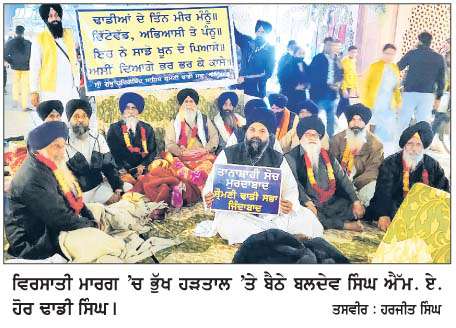 ਢਾਡੀਆਂ ਦੇ ਤਿੰਨ ਮੀਰ ਮੰਨੂੰ॥
ਛਿੱਟੇਵੱਢ, ਅਭਿਆਸੀ ਤੇ ਪੰਨੂ॥
ਇਹ ਨੇ ਸਾਡੇ ਖੂਨ ਦੇ ਪਿਆਸੇ॥
ਅਸੀਂ ਦਿਆਂਗੇ ਭਰ ਭਰ ਕੇ ਕਾਸੇ॥
ਤਾਨਾਸ਼ਾਹੀ ਸੋਚ
ਮੁਰਦਾਬਾਦ
ਸ਼੍ਰੋਮਣੀ ਢਾਡੀ ਸਭਾ
ਜ਼ਿੰਦਾਬਾਦ
ਵਿਰਸਾਤੀ ਮਾਰਗ 'ਚ ਭੁੱਖ ਹੜਤਾਲ 'ਤੇ ਬੈਠੇ ਬਲਦੇਵ ਸਿੰਘ ਐੱਮ. ਏ.
ਹੋਰ ਢਾਡੀ ਸਿੰਘ।
ਤਸਵੀਰ : ਹਰਜੀਤ ਸਿੰਘ